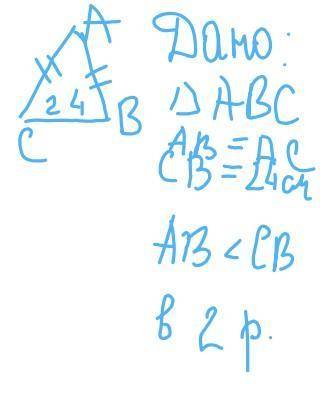 A
24
C
B
Дано:
△ABC
AB = AC
CB = 24см
AB < CB
в 2 р.